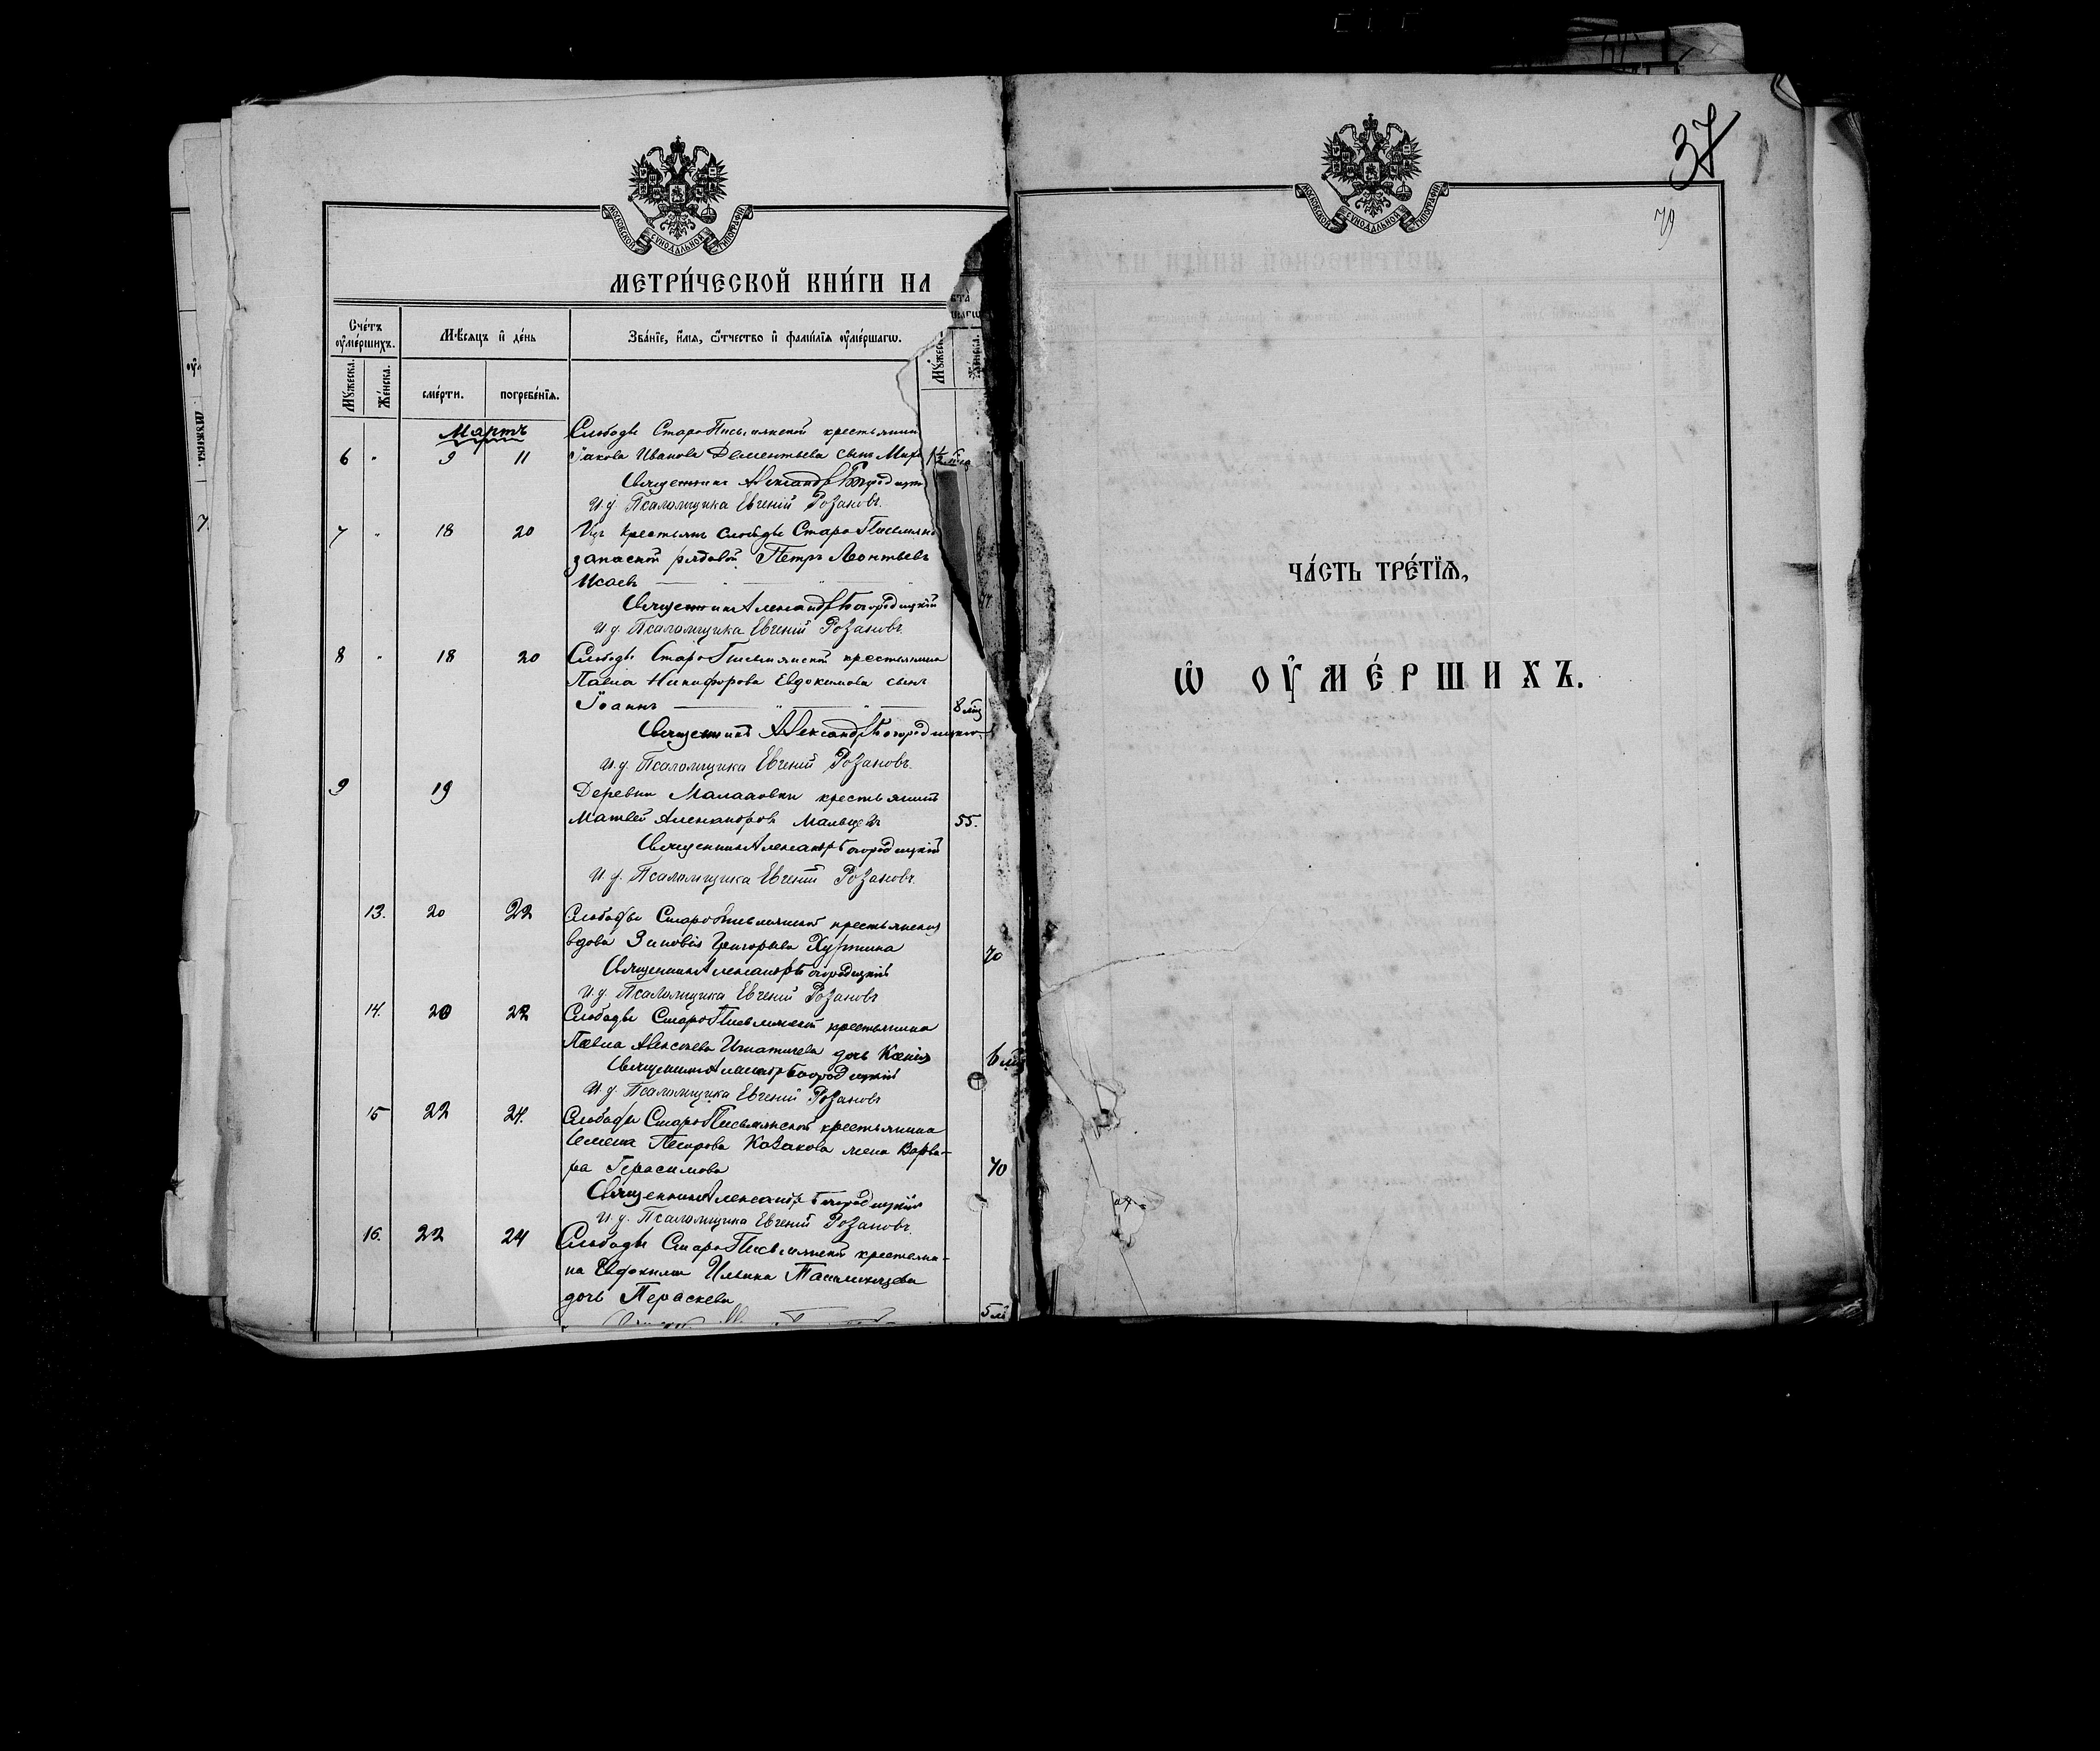 МОСКОВСКОЙ СУНОДАЛЬНОЙ ТИПОГРАФІИ
МЕТРИ́ЧЕСКОЙ КНИ́ГИ НА
Сче́тъ ᲂу҆ме́ршихъ.
Мѣ́сяцъ и҆ де́нь
Зва́нїе, и҆́мѧ, ѻ҆́тчество и҆ фамі́лїѧ ᲂу҆ме́ршагѡ.
Мꙋ́жеска.
Же́нска.
сме́рти.
погребе́нїѧ.
Мартъ
Слободы Старо Письмянской крестьянин
6 " 9 11 Іакова Иванова Дементьева сынъ
Священникъ Александр Богородицк
И. д. Псаломщика Евгеній Розановъ.
7 " 18 20 Изъ крестьянъ слободы Старо Письмянс
запасной рядовой Петръ Леонтьевъ
Исаевъ
Священникъ Александр Богородицкій
И. д. Псаломщика Евгеній Розановъ.
8 " 18 20 Слободы Старо Письмянской крестьянина
Павла Никифорова Евдокимова сынъ
Іоаннъ 8 мѣс
Священникъ Александр Богородицкій
И. д. Псаломщика Евгеній Розановъ.
9 19 Деревни крестьянинъ
Матвей Александровъ Мальцевъ 55.
Священникъ Александр Богородицкій
И. д. Псаломщика Евгеній Розановъ.
13. 20 22 Слободы Старо Письмянской крестьянская
вдова Зиновія Григорьева 70
Священникъ Александр Богородицкій
И. д. Псаломщика Евгеній Розановъ
14. 20 22 Слободы Старо Письмянской крестьянина
Павла Алексѣева Игнатичева дочь Ксенія 6
Священникъ Александр Богородицкій
И. д. Псаломщика Евгеній Розановъ
15 22 24. Слободы Старо Письмянской крестьянина
Семена Петрова Козакова жена Варва-
ра Герасимова 70
Священникъ Александр Богородицкій
И. д. Псаломщика Евгеній Розановъ.
16. 22 24 Слободы Старо Письмянской крестьяни-
на Евдокима Ильина
дочь Параскева 5
37
79
МОСКОВСКОЙ СУНОДАЛЬНОЙ ТИПОГРАФІИ
ЧА́СТЬ ТРЕ́ТЇѦ,
Ѡ҆ ОУ҆МЕ́РШИХЪ.